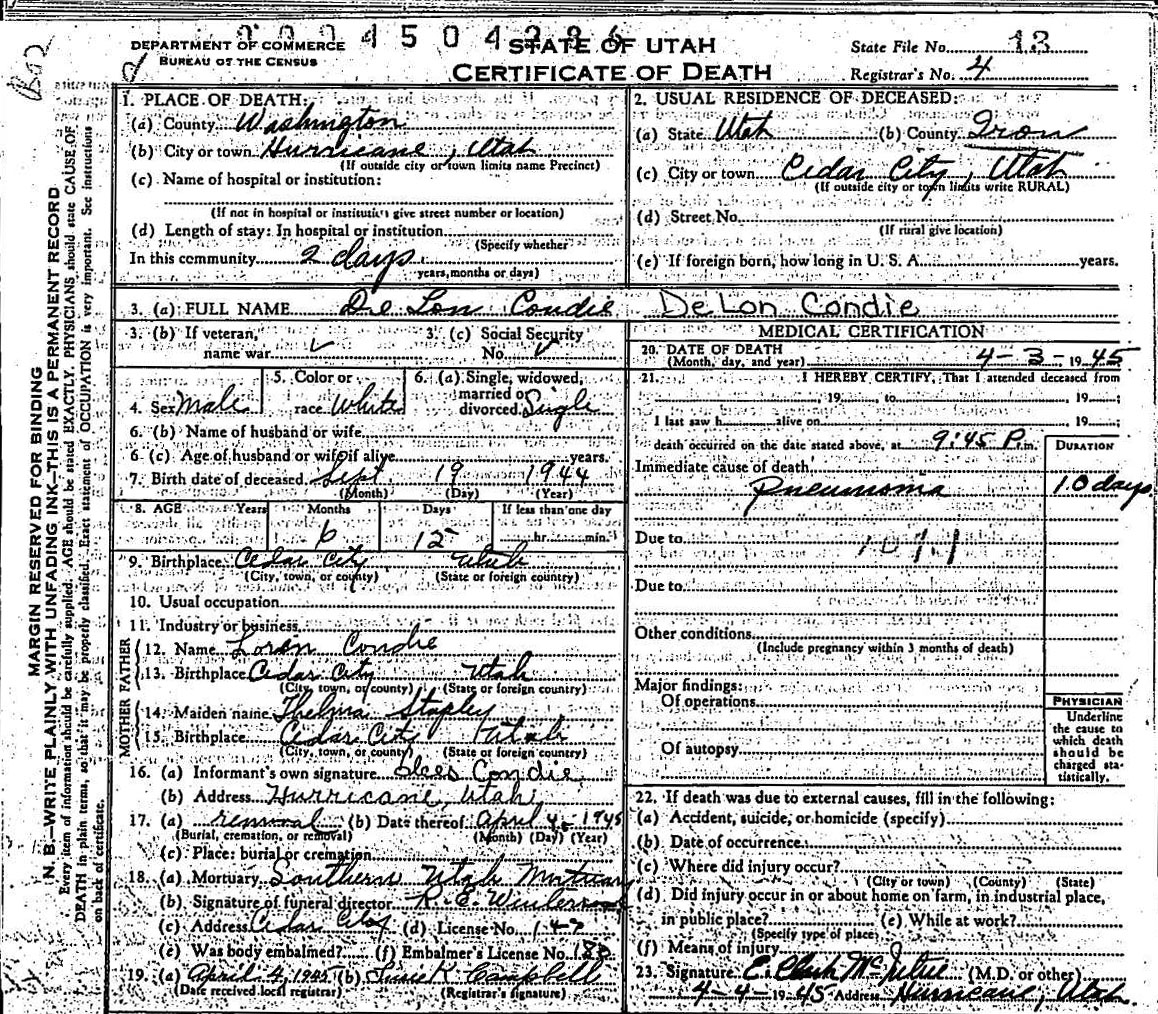 DEPARTMENT OF COMMERCE
BUREAU OF THE CENSUS
STATE OF UTAH
CERTIFICATE OF DEATH
State File No. 13
Registrar's No. 4
MARGIN RESERVED FOR BINDING
N. B.—WRITE PLAINLY WITH UNFADING INK—THIS IS A PERMANENT RECORD
Every item of information should be carefully supplied. AGE should be stated EXACTLY. PHYSICIANS should state CAUSE OF
DEATH in plain terms, so that it may be properly classified. Exact statement of OCCUPATION is very important. See instructions
on back of certificate.
1. PLACE OF DEATH:
(a) County Washington
(b) City or town Hurricane, Utah
(If outside city or town limits name Precinct)
(c) Name of hospital or institution:
(If not in hospital or institution give street number or location)
(d) Length of stay: In hospital or institution
(Specify whether
In this community 2 days
years, months or days)
2. USUAL RESIDENCE OF DECEASED:
(a) State Utah (b) County Iron
(c) City or town Cedar City, Utah
(If outside city or town limits write RURAL)
(d) Street No.
(If rural give location)
(e) If foreign born, how long in U. S. A. years.
3. (a) FULL NAME De Lon Condie DeLon Condie
3. (b) If veteran, name war
3. (c) Social Security No.
4. Sex Male
5. Color or race White
6. (a) Single, widowed, married or divorced Single
6. (b) Name of husband or wife
6 (c) Age of husband or wife if alive years.
7. Birth date of deceased Sept 19 1944
(Month) (Day) (Year)
8. AGE Years Months Days If less than one day
6 15 hr. min.
9. Birthplace Cedar City Utah
(City, town, or county) (State or foreign country)
10. Usual occupation
11. Industry or business
FATHER
12. Name Loren Condie
13. Birthplace Cedar City Utah
(City, town, or county) (State or foreign country)
MOTHER
14. Maiden name Thelma Stapley
15. Birthplace Cedar City Utah
(City, town, or county) (State or foreign country)
16. (a) Informant's own signature Condie
(b) Address Hurricane, Utah
17. (a) removal (b) Date thereof April 4 - 1945
(Burial, cremation, or removal) (Month) (Day) (Year)
(c) Place: burial or cremation
18. (a) Mortuary Southern Utah Mortuary
(b) Signature of funeral director R. E.
(c) Address Cedar City (d) License No.
(e) Was body embalmed? (f) Embalmer's License No.
19. (a) April 4, 1945 (b) Campbell
(Date received local registrar) (Registrar's signature)
MEDICAL CERTIFICATION
20. DATE OF DEATH
(Month, day, and year) 4 - 3 - 1945
21. I HEREBY CERTIFY, That I attended deceased from
, 19 , to , 19 ;
I last saw h alive on , 19 ;
death occurred on the date stated above, at 9:45 P.m.
DURATION
Immediate cause of death
Pneumonia 10 days
Due to
Due to
Other conditions
(Include pregnancy within 3 months of death)
Major findings:
Of operations
Of autopsy
PHYSICIAN
Underline
the cause to
which death
should be
charged sta-
tistically.
22. If death was due to external causes, fill in the following:
(a) Accident, suicide, or homicide (specify)
(b) Date of occurrence
(c) Where did injury occur?
(City or town) (County) (State)
(d) Did injury occur in or about home on farm, in industrial place,
in public place? (e) While at work?
(Specify type of place)
(f) Means of injury
23. Signature E. Clark (M.D. or other)
4-4-1945 Address Hurricane, Utah.